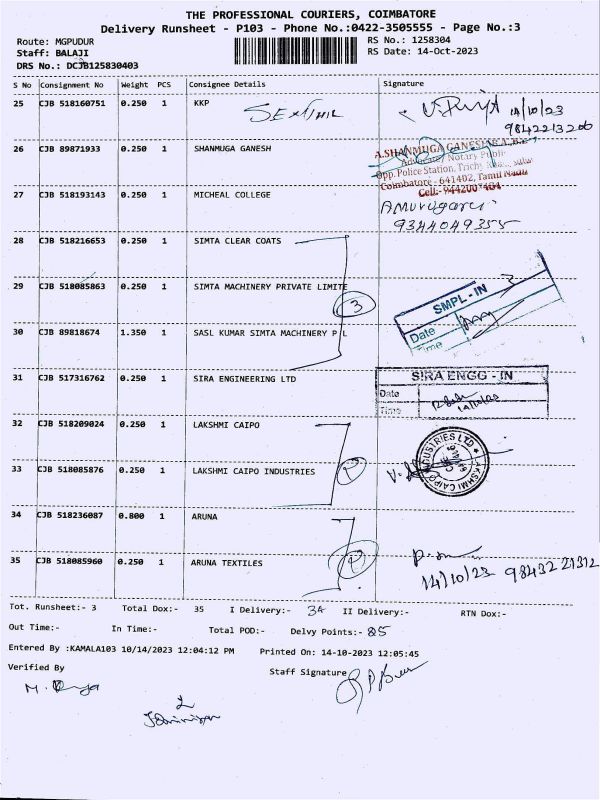 THE PROFESSIONAL COURIERS, COIMBATORE
Delivery Runsheet - P103 - Phone No.:0422-3505555 - Page No.:3
Route: MGPUDUR RS No.: 1258304
Staff: BALAJI RS Date: 14-Oct-2023
DRS No.: DCJB125830403
S No Consignment No Weight PCS Consignee Details Signature
25 CJB 518160751 0.250 1 KKP 14/10/23
9842213206
26 CJB 89871933 0.250 1 SHANMUGA GANESH A.SHANMUGA GANESH
Advocate/ Notary Public
Opp. Police Station, Trichy Road,
Coimbatore - 641402, Tamil Nadu
Cell:-
27 CJB 518193143 0.250 1 MICHEAL COLLEGE
9344049355
28 CJB 518216653 0.250 1 SIMTA CLEAR COATS
29 CJB 518085863 0.250 1 SIMTA MACHINERY PRIVATE LIMITE
3
SMPL - IN
Date
Time
30 CJB 89818674 1.350 1 SASL KUMAR SIMTA MACHINERY P L
31 CJB 517316762 0.250 1 SIRA ENGINEERING LTD SIRA ENGG - IN
Date
Time
32 CJB 518209024 0.250 1 LAKSHMI CAIPO
33 CJB 518085876 0.250 1 LAKSHMI CAIPO INDUSTRIES
LAKSHMI CAIPO INDUSTRIES LTD
34 CJB 518236087 0.800 1 ARUNA
35 CJB 518085960 0.250 1 ARUNA TEXTILES
14/10/23 9843221312
Tot. Runsheet:- 3 Total Dox:- 35 I Delivery:- 34 II Delivery:- RTN Dox:-
Out Time:- In Time:- Total POD:- Delvy Points:-
Entered By :KAMALA103 10/14/2023 12:04:12 PM Printed On: 14-10-2023 12:05:45
Verified By Staff Signature